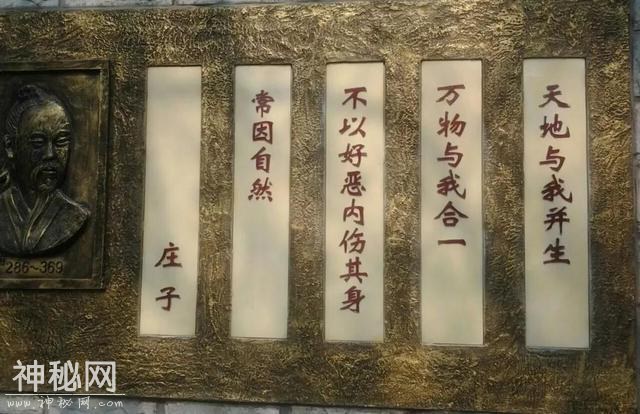 天地与我并生
万物与我合一
不以好恶内伤其身
常因自然
庄子
286~369
神秘网
www.神秘网.com